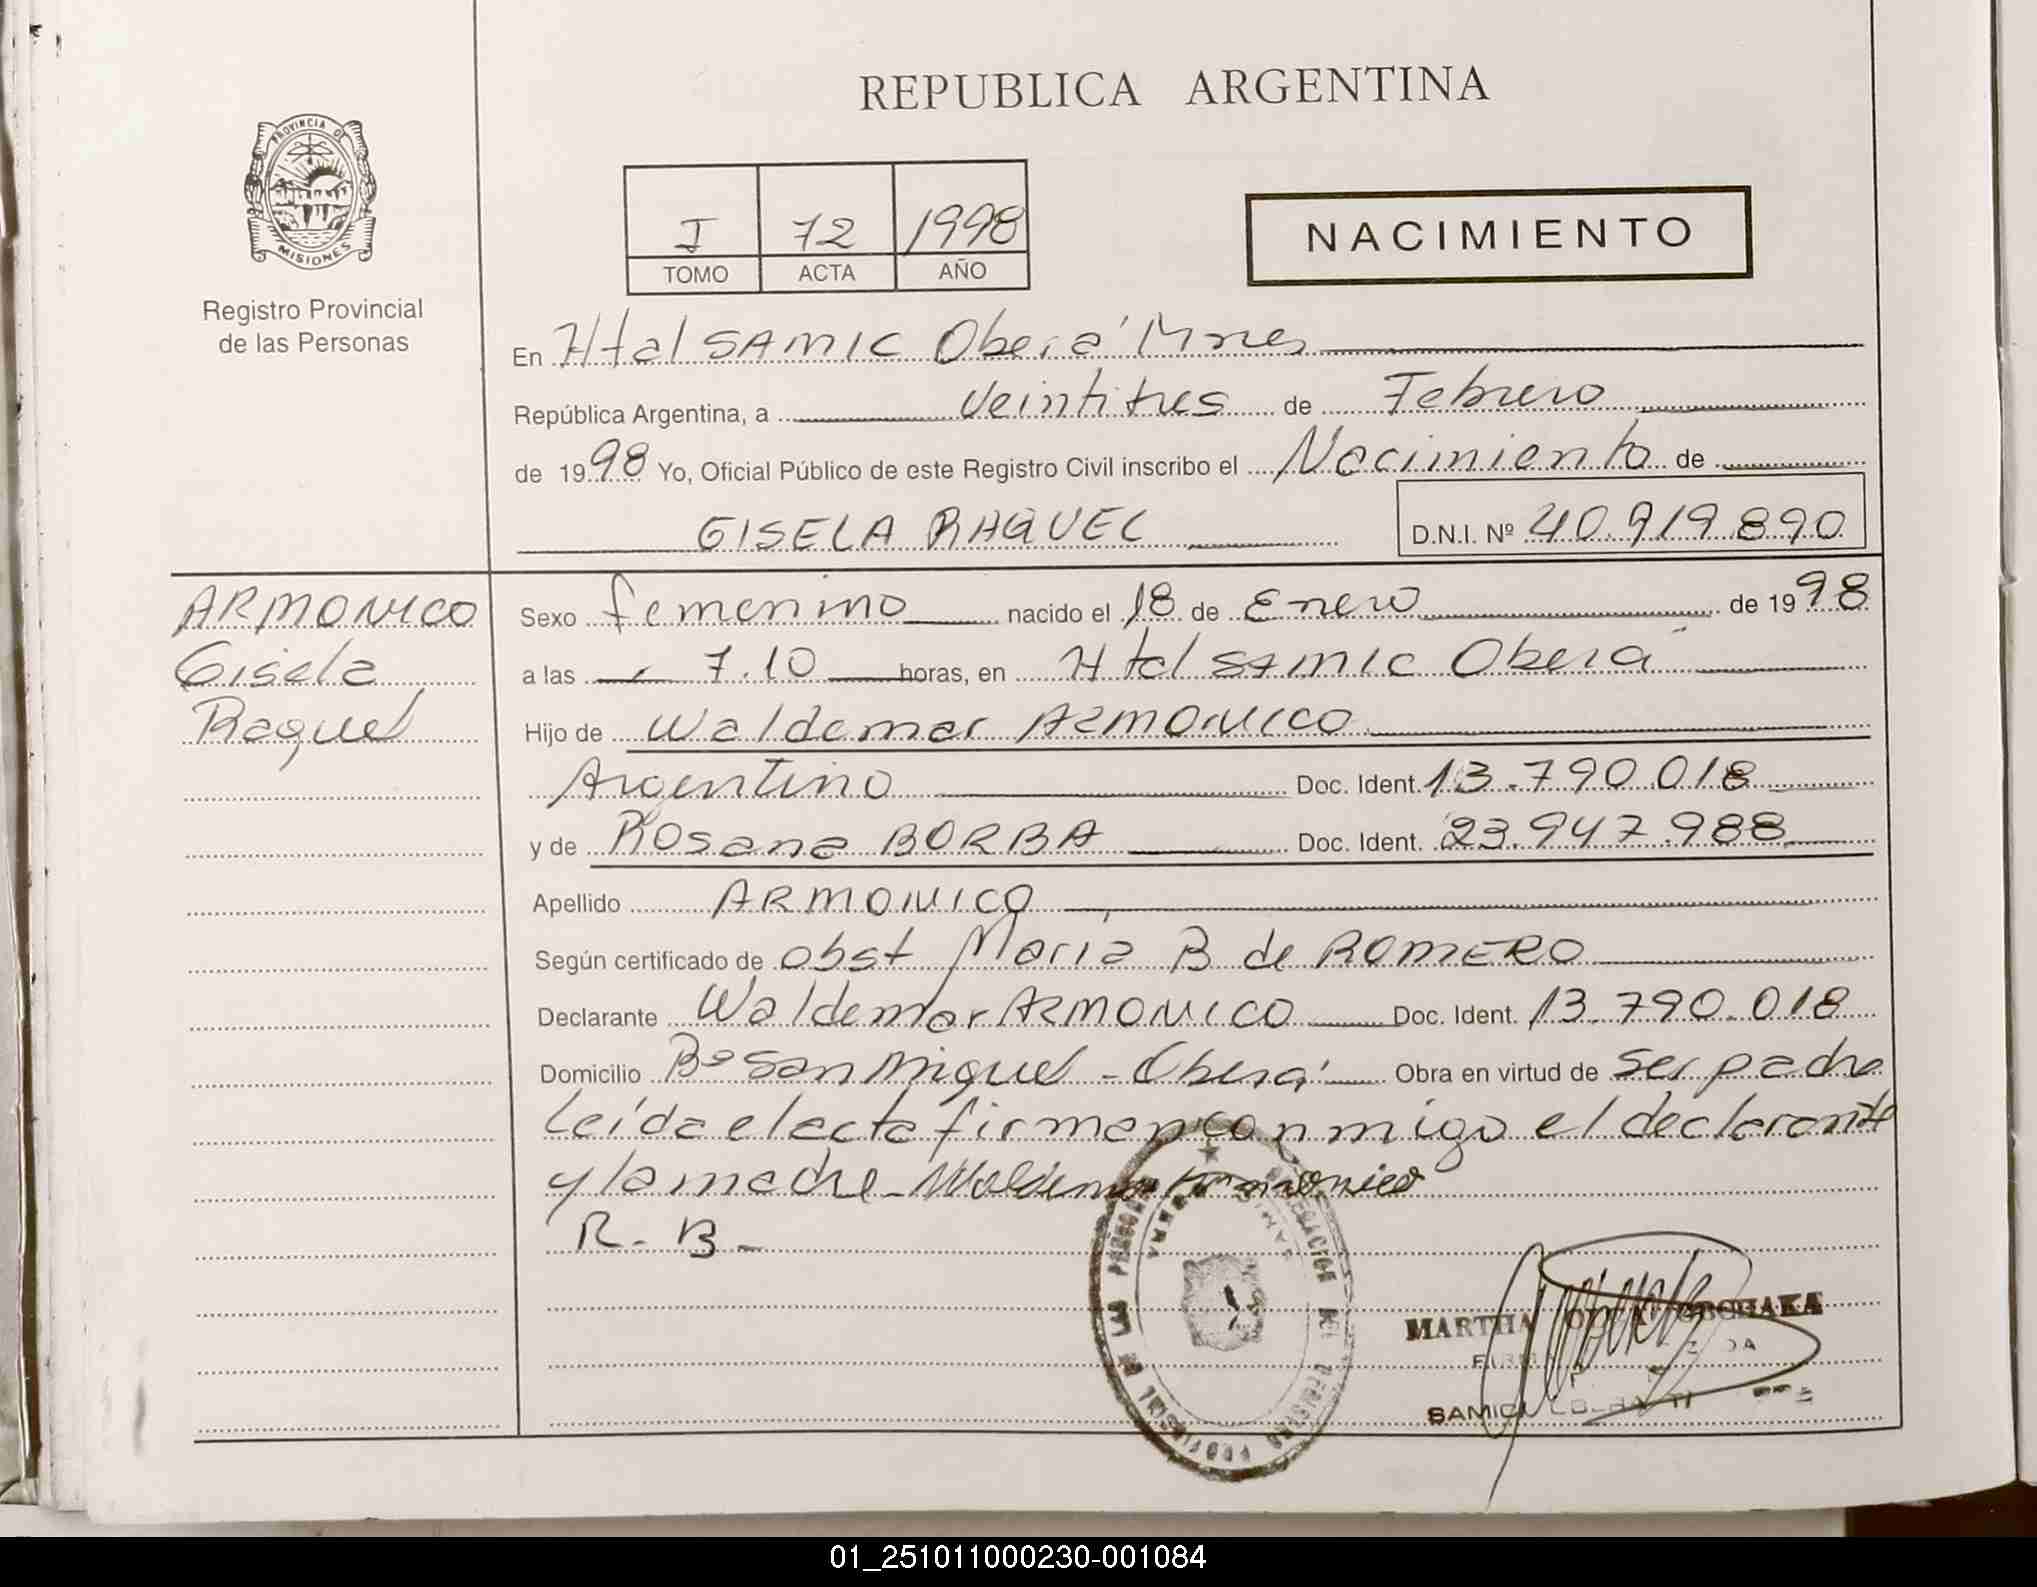 REPUBLICA ARGENTINA
PROVINCIA DE
MISIONES
Registro Provincial
de las Personas
I 72 1998
TOMO ACTA AÑO
NACIMIENTO
En Htal SAMIC Oberá Mnes
República Argentina, a Veintitres de Febrero
de 1998 Yo, Oficial Público de este Registro Civil inscribo el Nacimiento de
GISELA RAQUEL D.N.I. Nº 40.919.890
ARMONICO
Gisela
Raquel
Sexo femenino nacido el 18 de Enero de 1998
a las 7.10 horas, en Htal SAMIC Oberá
Hijo de Waldemar ARMONICO
Argentino Doc. Ident. 13.790.018
y de Rosana BORBA Doc. Ident. 23.947.988
Apellido ARMONICO
Según certificado de obst María B de ROMERO
Declarante Waldemar ARMONICO Doc. Ident. 13.790.018
Domicilio Bº San Miguel - Oberá Obra en virtud de ser padre
Leída el acta firman conmigo el declarante
y la madre - Waldemar Armonico
R. B -
MARTHA
SAMIC
01_251011000230-001084